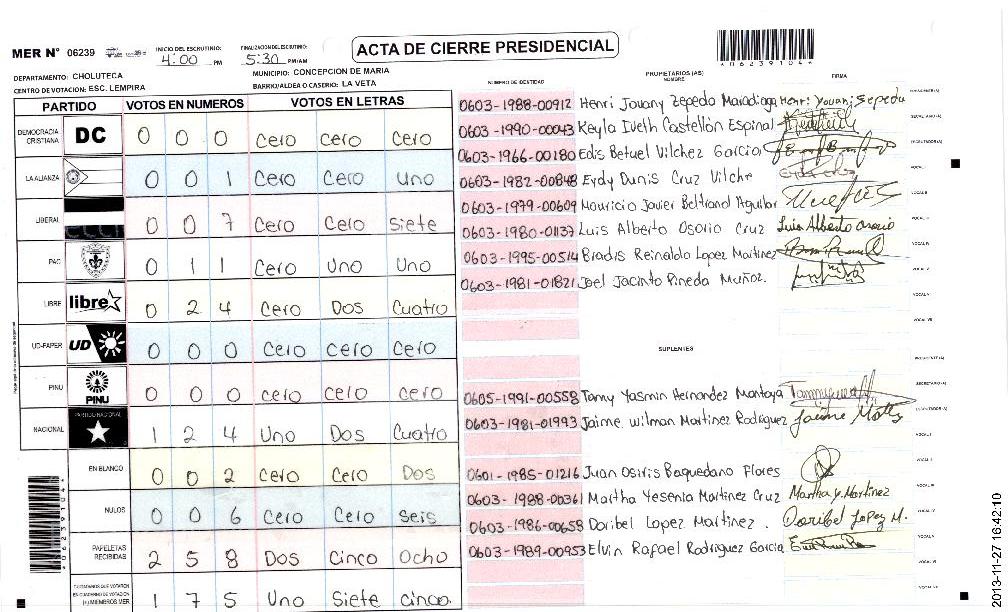 MER N° 06239
INICIO DEL ESCRUTINIO: 4:00 PM
FINALIZACION DEL ESCRUTINIO: 5:30 PM/AM
ACTA DE CIERRE PRESIDENCIAL
*0623910 4*
DEPARTAMENTO: CHOLUTECA
MUNICIPIO: CONCEPCION DE MARIA
CENTRO DE VOTACION: ESC. LEMPIRA
BARRIO/ALDEA O CASERIO: LA VETA
PARTIDO VOTOS EN NUMEROS VOTOS EN LETRAS
DEMOCRACIA CRISTIANA DC 0 0 0 Cero Cero Cero
LA ALIANZA 0 0 1 Cero Cero Uno
LIBERAL 0 0 7 Cero Cero Siete
PAC 0 1 1 Cero Uno Uno
LIBRE libre 0 2 4 Cero Dos Cuatro
UD-FAPER UD 0 0 0 Cero Cero Cero
PINU PINU 0 0 0 Cero Cero Cero
NACIONAL PARTIDO NACIONAL 1 2 4 Uno Dos Cuatro
EN BLANCO 0 0 2 Cero Cero Dos
NULOS 0 0 6 Cero Cero Seis
PAPELETAS RECIBIDAS 2 5 8 Dos Cinco Ocho
CIUDADANOS QUE VOTARON EN CUADERNO DE VOTACION (+) MIEMBROS MER 1 7 5 Uno Siete Cinco.
NUMERO DE IDENTIDAD PROPIETARIOS (AS) NOMBRE FIRMA
0603-1988-00912 Henri Jovany Zepeda Maradiaga
0603-1990-00043 Keyla Iveth Castellón Espinal
0603-1966-00180 Edis Betuel Vilchez Garcia
0603-1982-00848 Eydy Dunis Cruz Vilche
0603-1979-00609 Mauricio Javier Beltrand Aguilar
0603-1980-01137 Luis Alberto Osorio Cruz Luis Alberto osorio
0603-1995-00514 Bradis Reinaldo Lopez Martinez
0603-1981-01821 Joel Jacinto Pineda Muñoz.
SUPLENTES
0605-1991-00558 Tamy Yasmin Hernandez Montoya
0603-1981-01993 Jaime Wilman Martinez Rodriguez
0601-1985-01216 Juan Osiris Baquedano Flores
0603-1988-00361 Martha Yesenia Martinez Cruz Martha y. Martinez
0603-1986-00658 Doribel Lopez Martinez. Doribel Lopez M.
0603-1989-00953 Elvin Rafael Rodriguez Garcia
2013-11-27 16:42:10